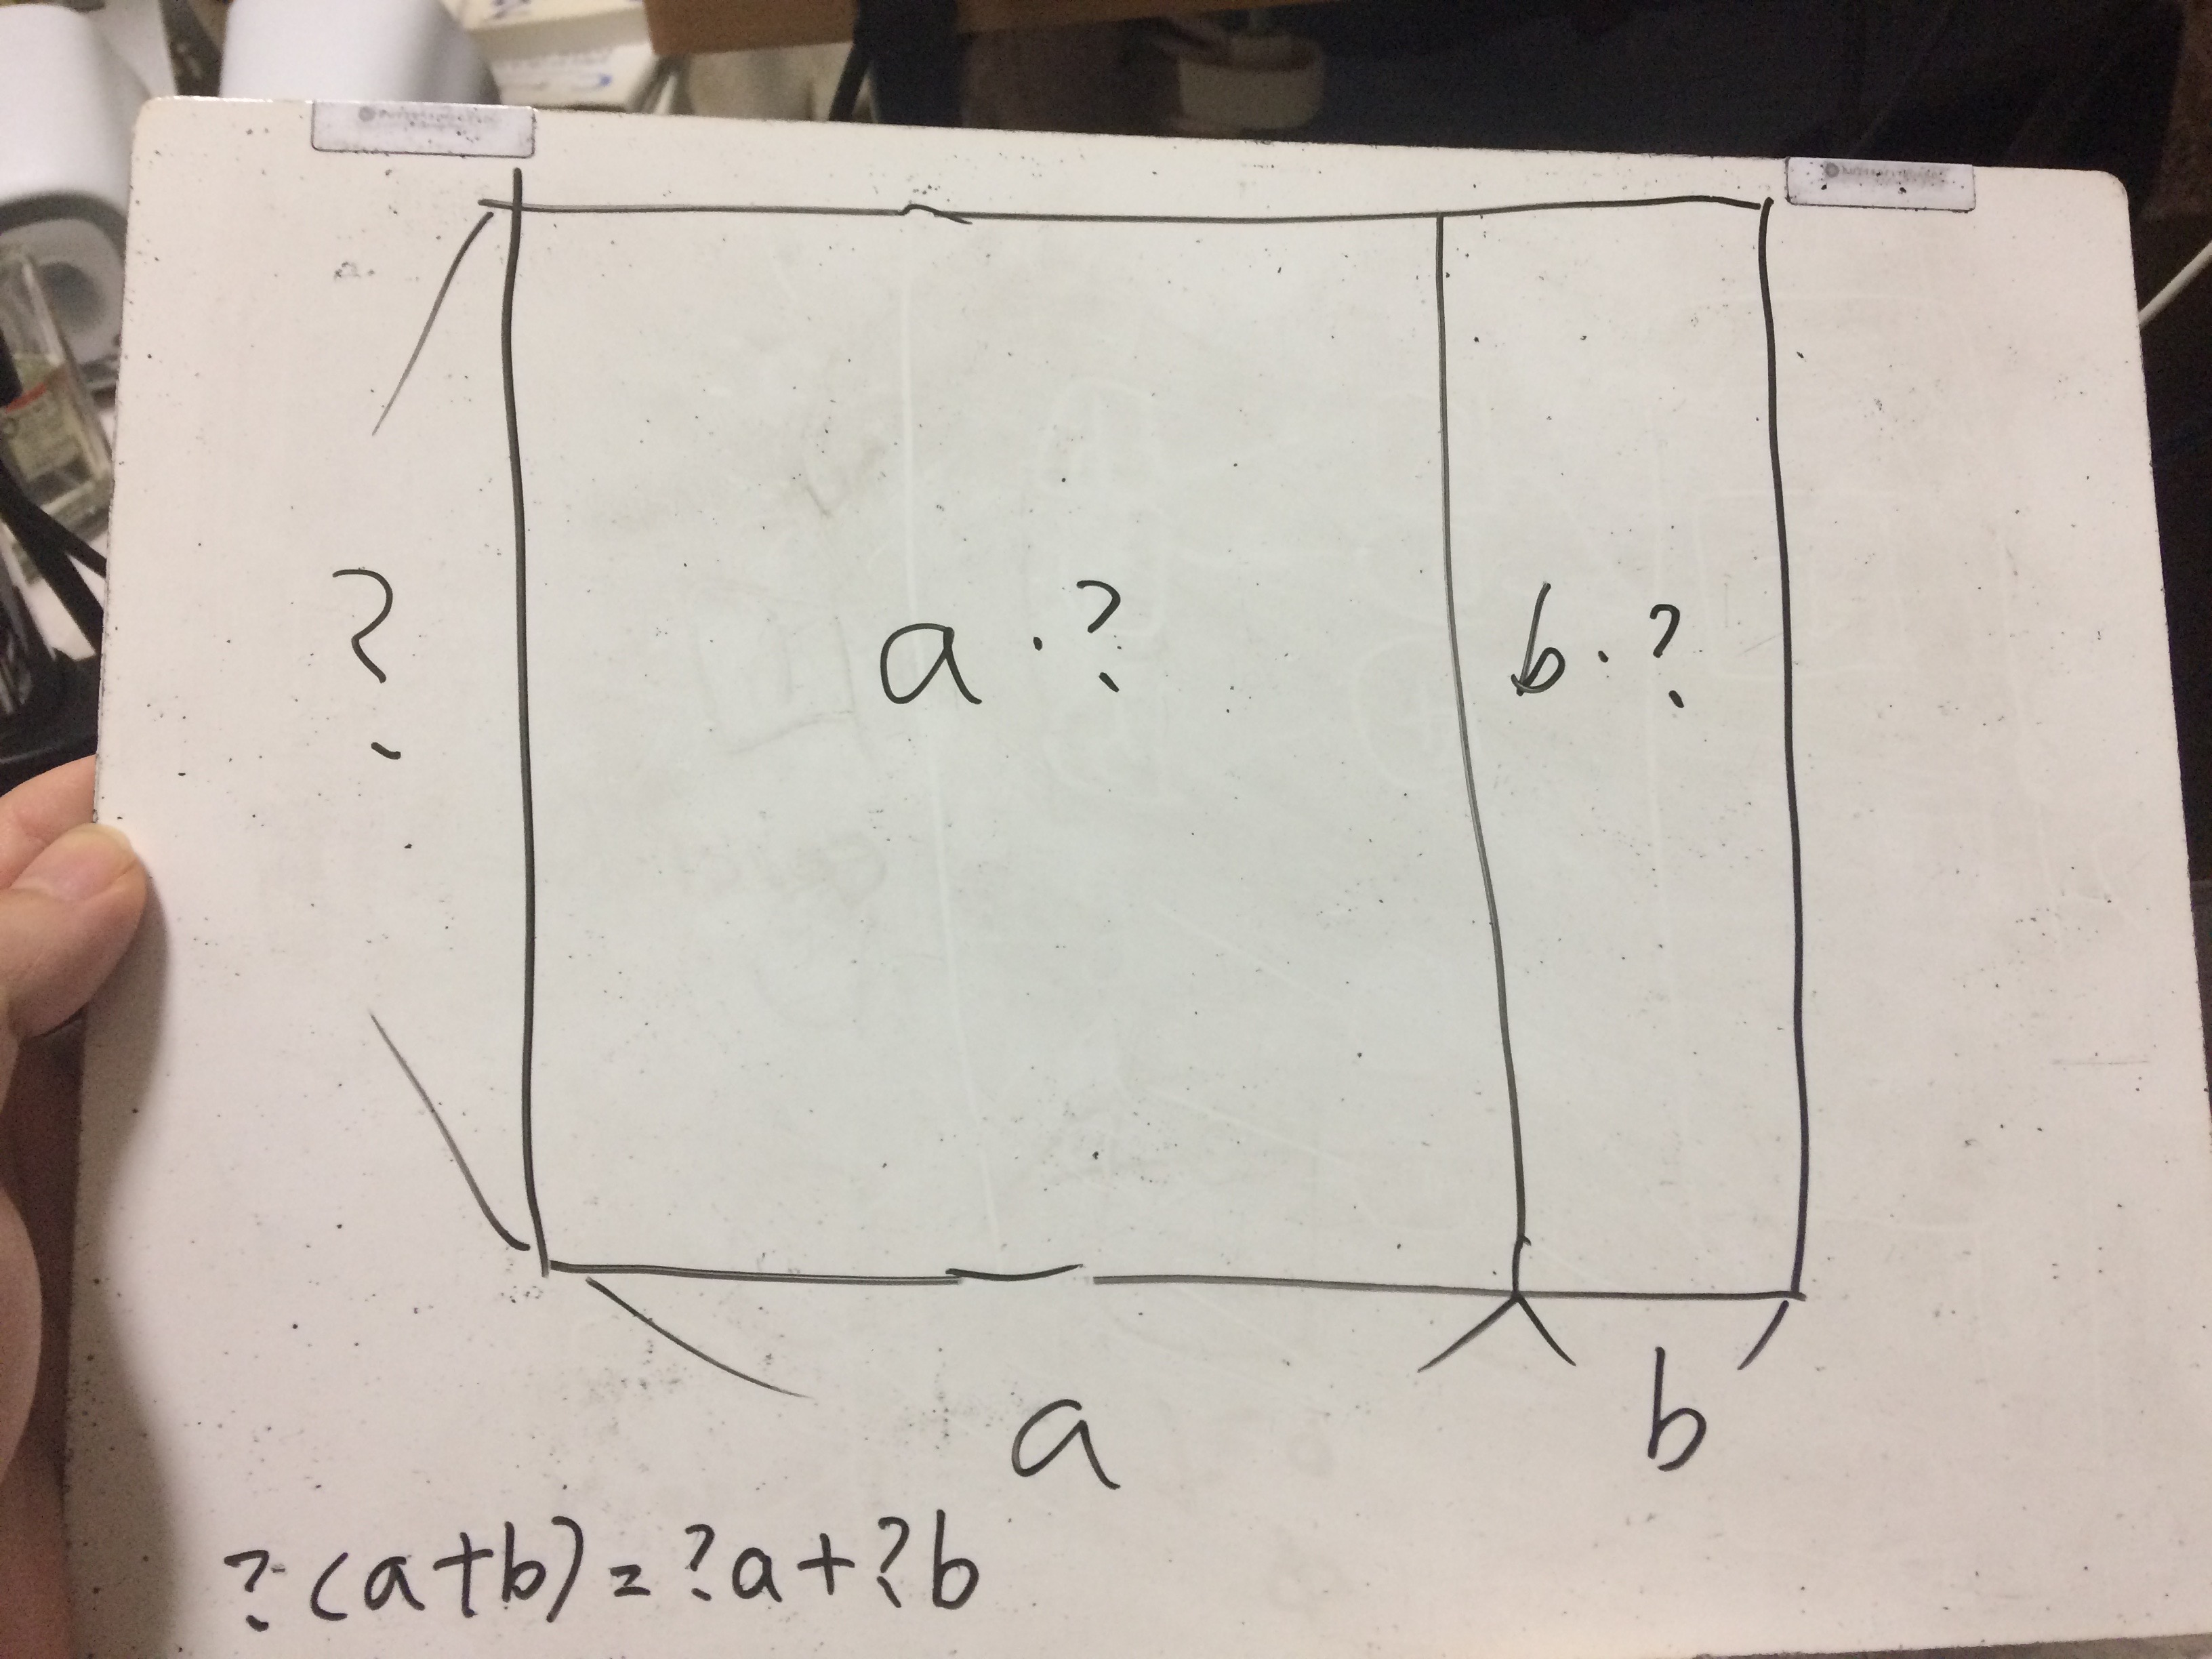 ?
a · ?
b · ?
a
b
?(a+b)=?a+?b